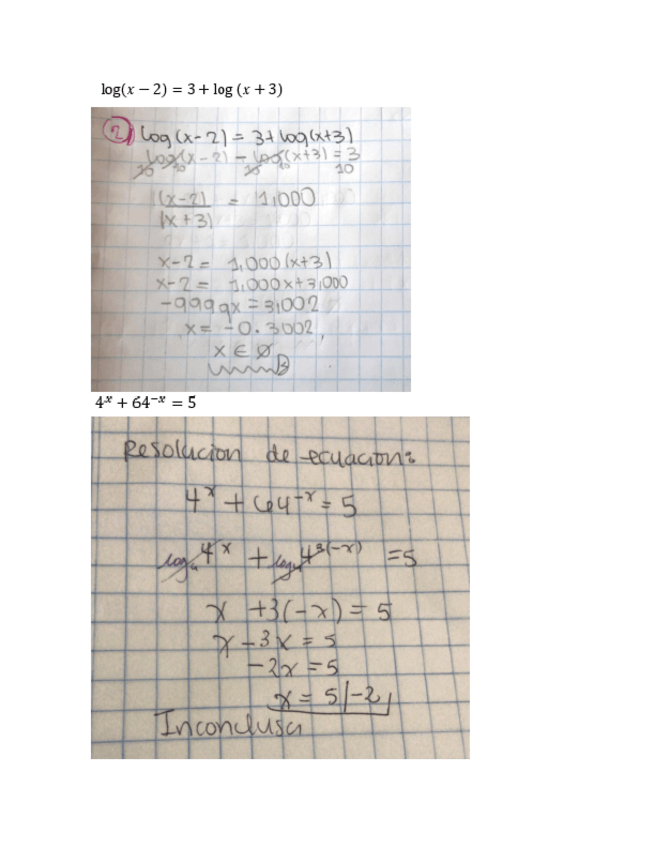 log(x − 2) = 3 + log (x + 3)
2) log(x-2) = 3+log(x+3)
10 log10(x-2) - 10 log10(x+3) = 3 10
(x-2)/(x+3) = 1,000
x-2 = 1,000(x+3)
x-2 = 1,000x+3,000
-9999x = 3,002
x = -0.3002,
x ∈ ∅
4ˣ + 64⁻ˣ = 5
Resolucion de ecuacion:
4ˣ + 64⁻ˣ = 5
log₄ 4ˣ + log₄ 4³⁽⁻ˣ⁾ = 5
x + 3(-x) = 5
x - 3x = 5
-2x = 5
x = 5/-2
Inconclusa